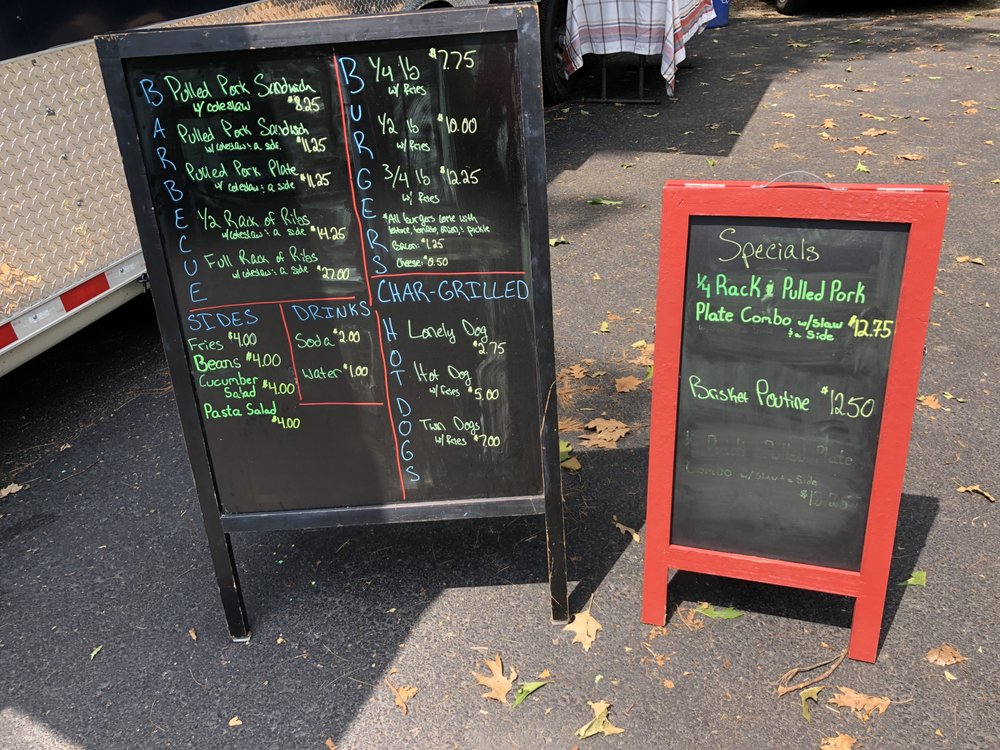 BARBECUE
Pulled Pork Sandwich
w/ coleslaw $8.25
Pulled Pork Sandwich
w/ coleslaw & a side $11.25
Pulled Pork Plate
w/ coleslaw & a side $11.25
1/2 Rack of Ribs
w/ coleslaw & a side $14.25
Full Rack of Ribs
w/ coleslaw & a side $27.00
BURGERS
1/4 lb $7.75
w/ fries
1/2 lb $10.00
w/ fries
3/4 lb $12.25
w/ fries
*All burgers come with
lettuce, tomato, onion, & pickle
Bacon: $1.25
Cheese: $0.50
SIDES
Fries $4.00
Beans $4.00
Cucumber
Salad $4.00
Pasta Salad
$4.00
DRINKS
Soda $2.00
Water $1.00
CHAR-GRILLED
HOT DOGS
Lonely Dog
$2.75
Hot Dog
w/ fries $5.00
Twin Dogs
w/ fries $7.00
Specials
1/4 Rack & Pulled Pork
Plate Combo w/ slaw $12.75
& a Side
Brisket Poutine $12.50
Pulled Plate
Combo w/ slaw & a Side